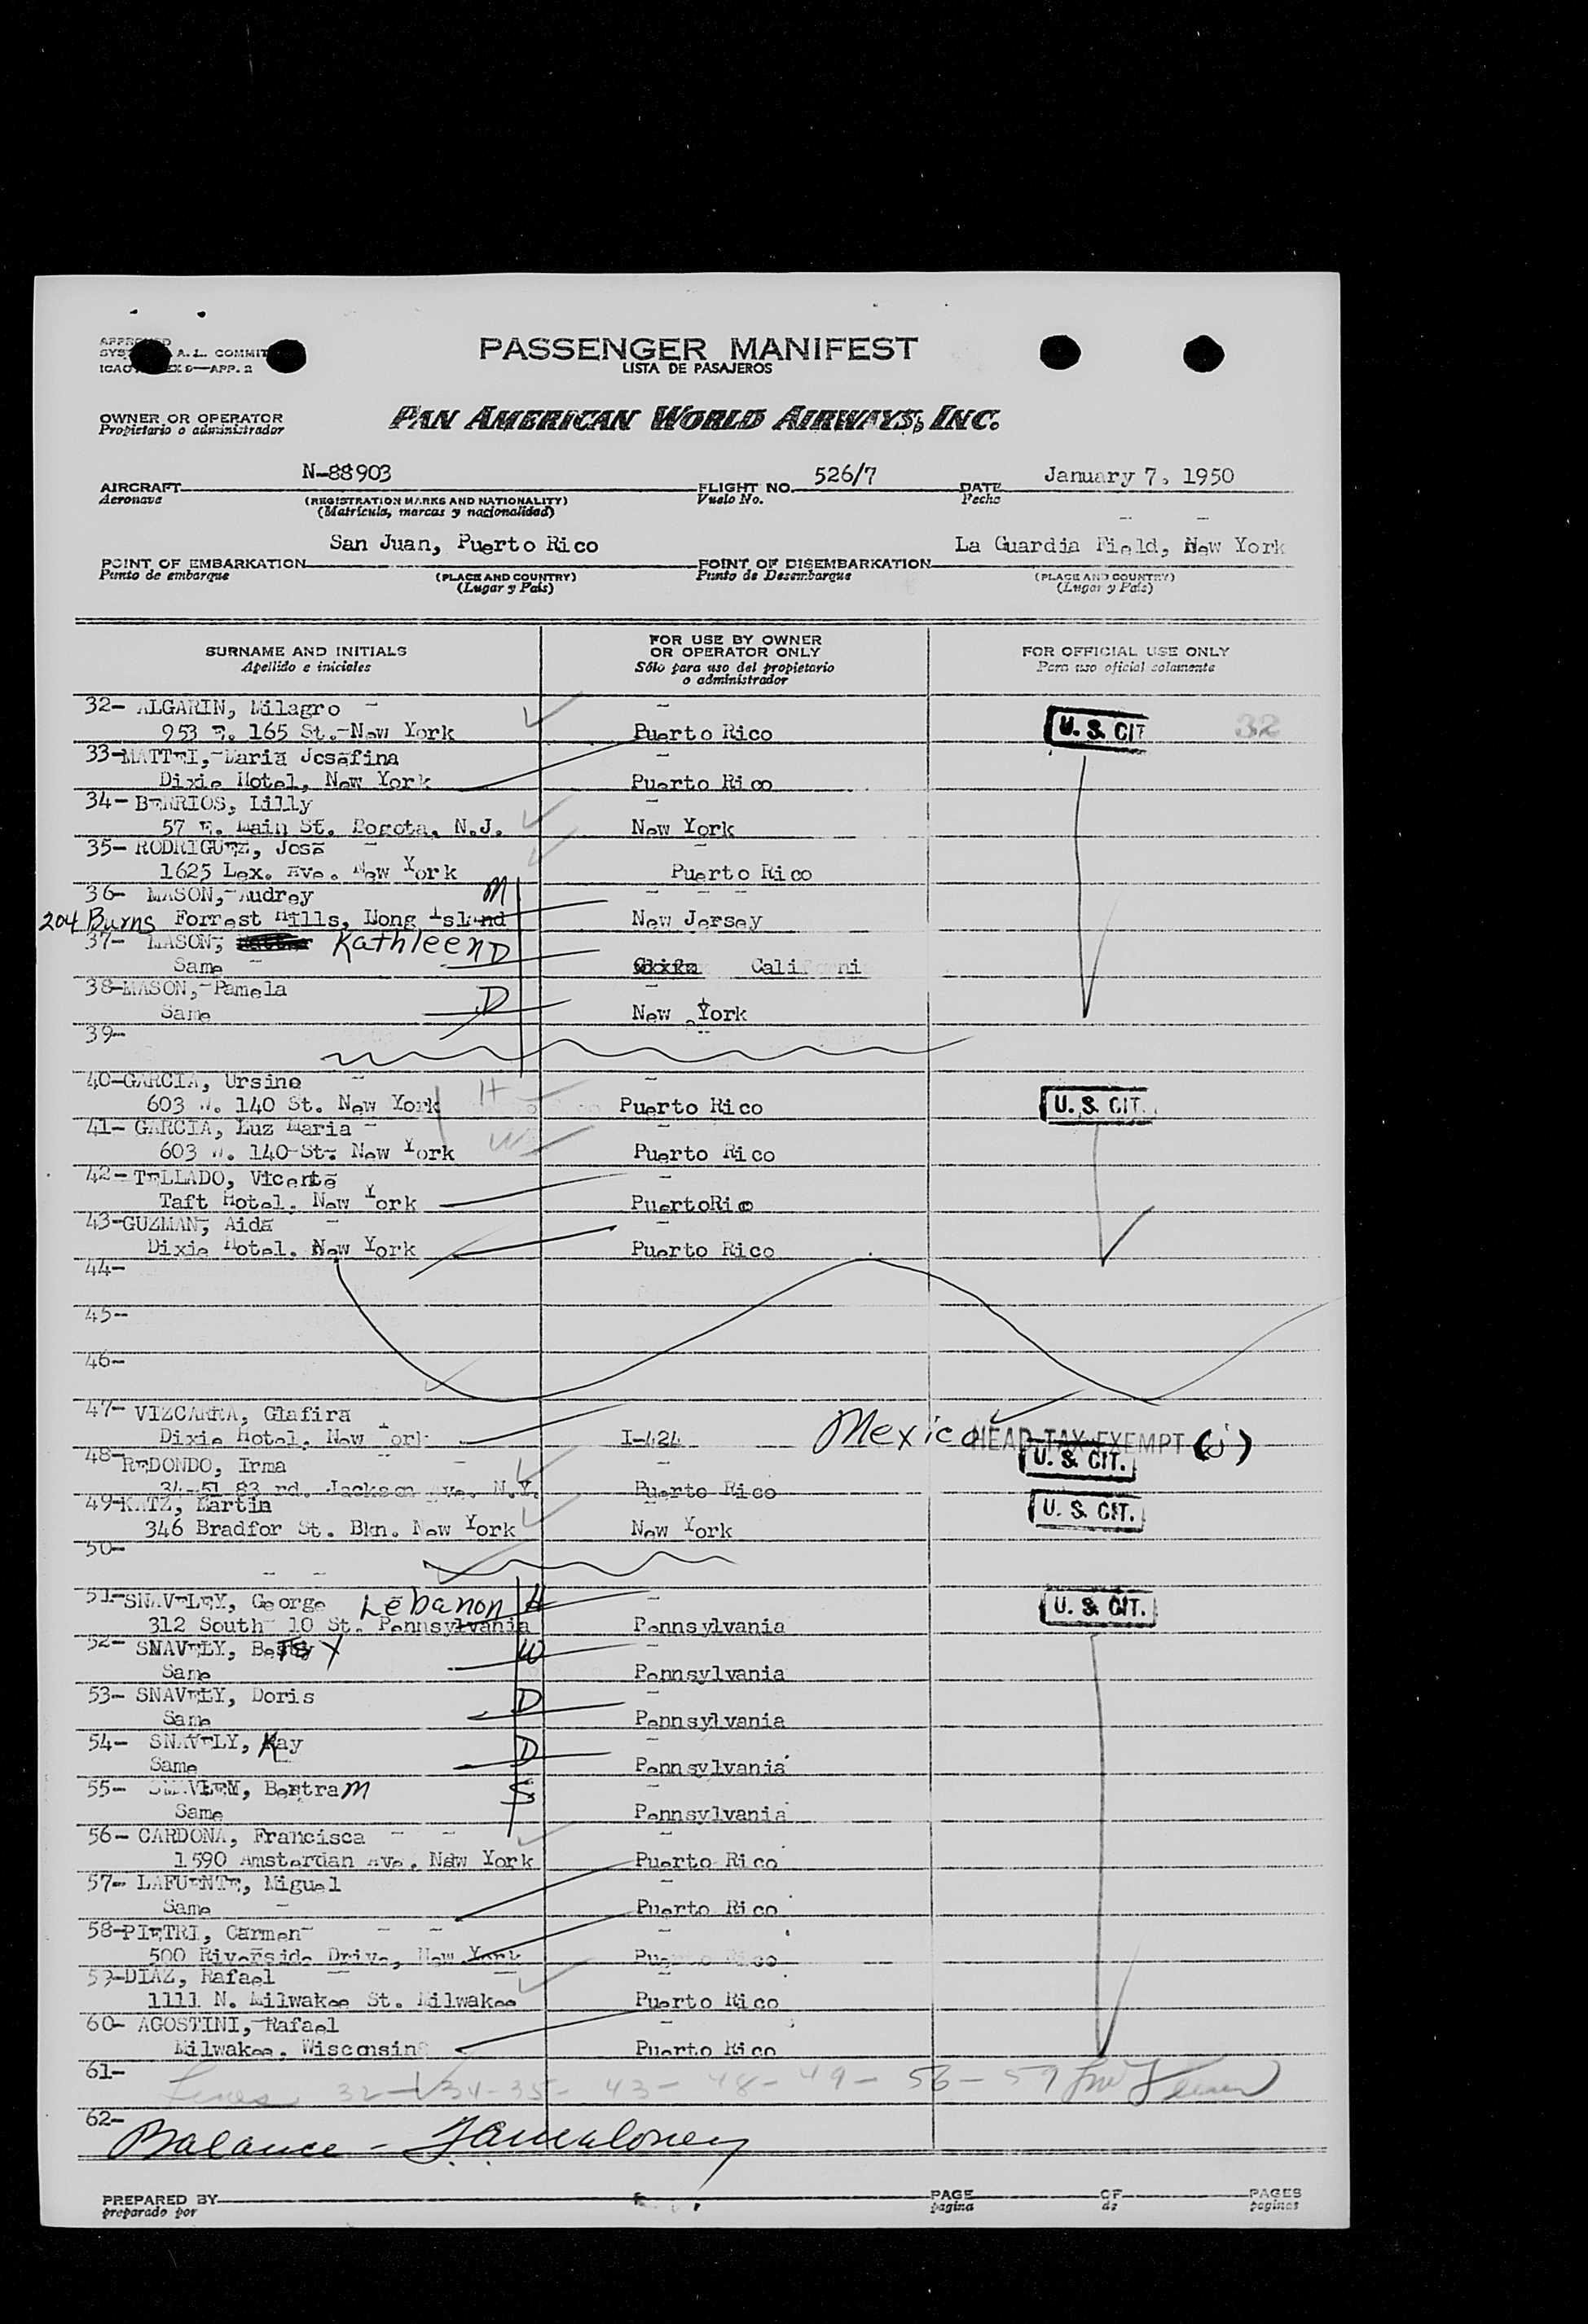 PASSENGER MANIFEST
LISTA DE PASAJEROS
A. L. COMMIT
ICAO EX 9—APP. 2
OWNER OR OPERATOR
Propietario o administrador
PAN AMERICAN WORLD AIRWAYS, INC.
AIRCRAFT N-88903 FLIGHT NO. 526/7 DATE January 7, 1950
Aeronave (REGISTRATION MARKS AND NATIONALITY) Vuelo No. Fecha
(Matrícula, marcas y nacionalidad)
POINT OF EMBARKATION San Juan, Puerto Rico POINT OF DISEMBARKATION La Guardia Field, New York
Punto de embarque (PLACE AND COUNTRY) Punto de Desembarque (PLACE AND COUNTRY)
(Lugar y País) (Lugar y País)
SURNAME AND INITIALS FOR USE BY OWNER OR OPERATOR ONLY FOR OFFICIAL USE ONLY
Apellido e iniciales Sólo para uso del propietario o administrador Para uso oficial solamente
32- ALGARIN, Milagro
953 E. 165 St. New York Puerto Rico U. S. CIT 32
33-MATTEI, Maria Josefina
Dixie Hotel, New York Puerto Rico
34- BERRIOS, Lilly
57 E. Main St. Bogota, N.J. New York
35- RODRIGUEZ, Jose
1625 Lex. Ave. New York Puerto Rico
36- MASON, Audrey M
204 Burns Forrest Hills, Long Island New Jersey
37- MASON, Kathleen D
Same Cali
38-MASON, Pamela D
Same New York
39-
40-GARCIA, Ursino H
603 W. 140 St. New York Puerto Rico U. S. CIT.
41- GARCIA, Luz Maria W
603 W. 140 St. New York Puerto Rico
42- TELLADO, Vicente
Taft Hotel, New York PuertoRico
43-GUZMAN, Aida
Dixie Hotel. New York Puerto Rico
44-
45-
46-
47- VIZCARRA, Glafira
Dixie Hotel, New York I-424 Mexico HEAD TAX EXEMPT (j)
48-REDONDO, Irma U. S. CIT.
34-51 83 rd. Jackson Ave. N.Y. Puerto Rico
49-KATZ, Martin U. S. CIT.
346 Bradfor St. Bkn. New York New York
50-
51-SNAVELEY, George Lebanon H
312 South 10 St. Pennsylvania Pennsylvania U. S. CIT.
52- SNAVELY, Betsy W
Same Pennsylvania
53- SNAVELY, Doris D
Same Pennsylvania
54- SNAVELY, Kay D
Same Pennsylvania
55- Bertram S
Same Pennsylvania
56- CARDONA, Francisca
1590 Amsterdan Ave. New York Puerto Rico
57- LAFUENTE, Miguel
Same Puerto Rico
58-PIETRI, Carmen
500 Riverside Drive, New York Puerto Rico
59-DIAZ, Rafael
1111 N. Milwakee St. Milwakee Puerto Rico
60- AGOSTINI, Rafael
Milwakee. Wisconsin Puerto Rico
61- Lines 32- 34-35- 43- 48- 49- 56- 59
62- Balance -
PREPARED BY PAGE OF PAGES
preparado por pagina de paginas